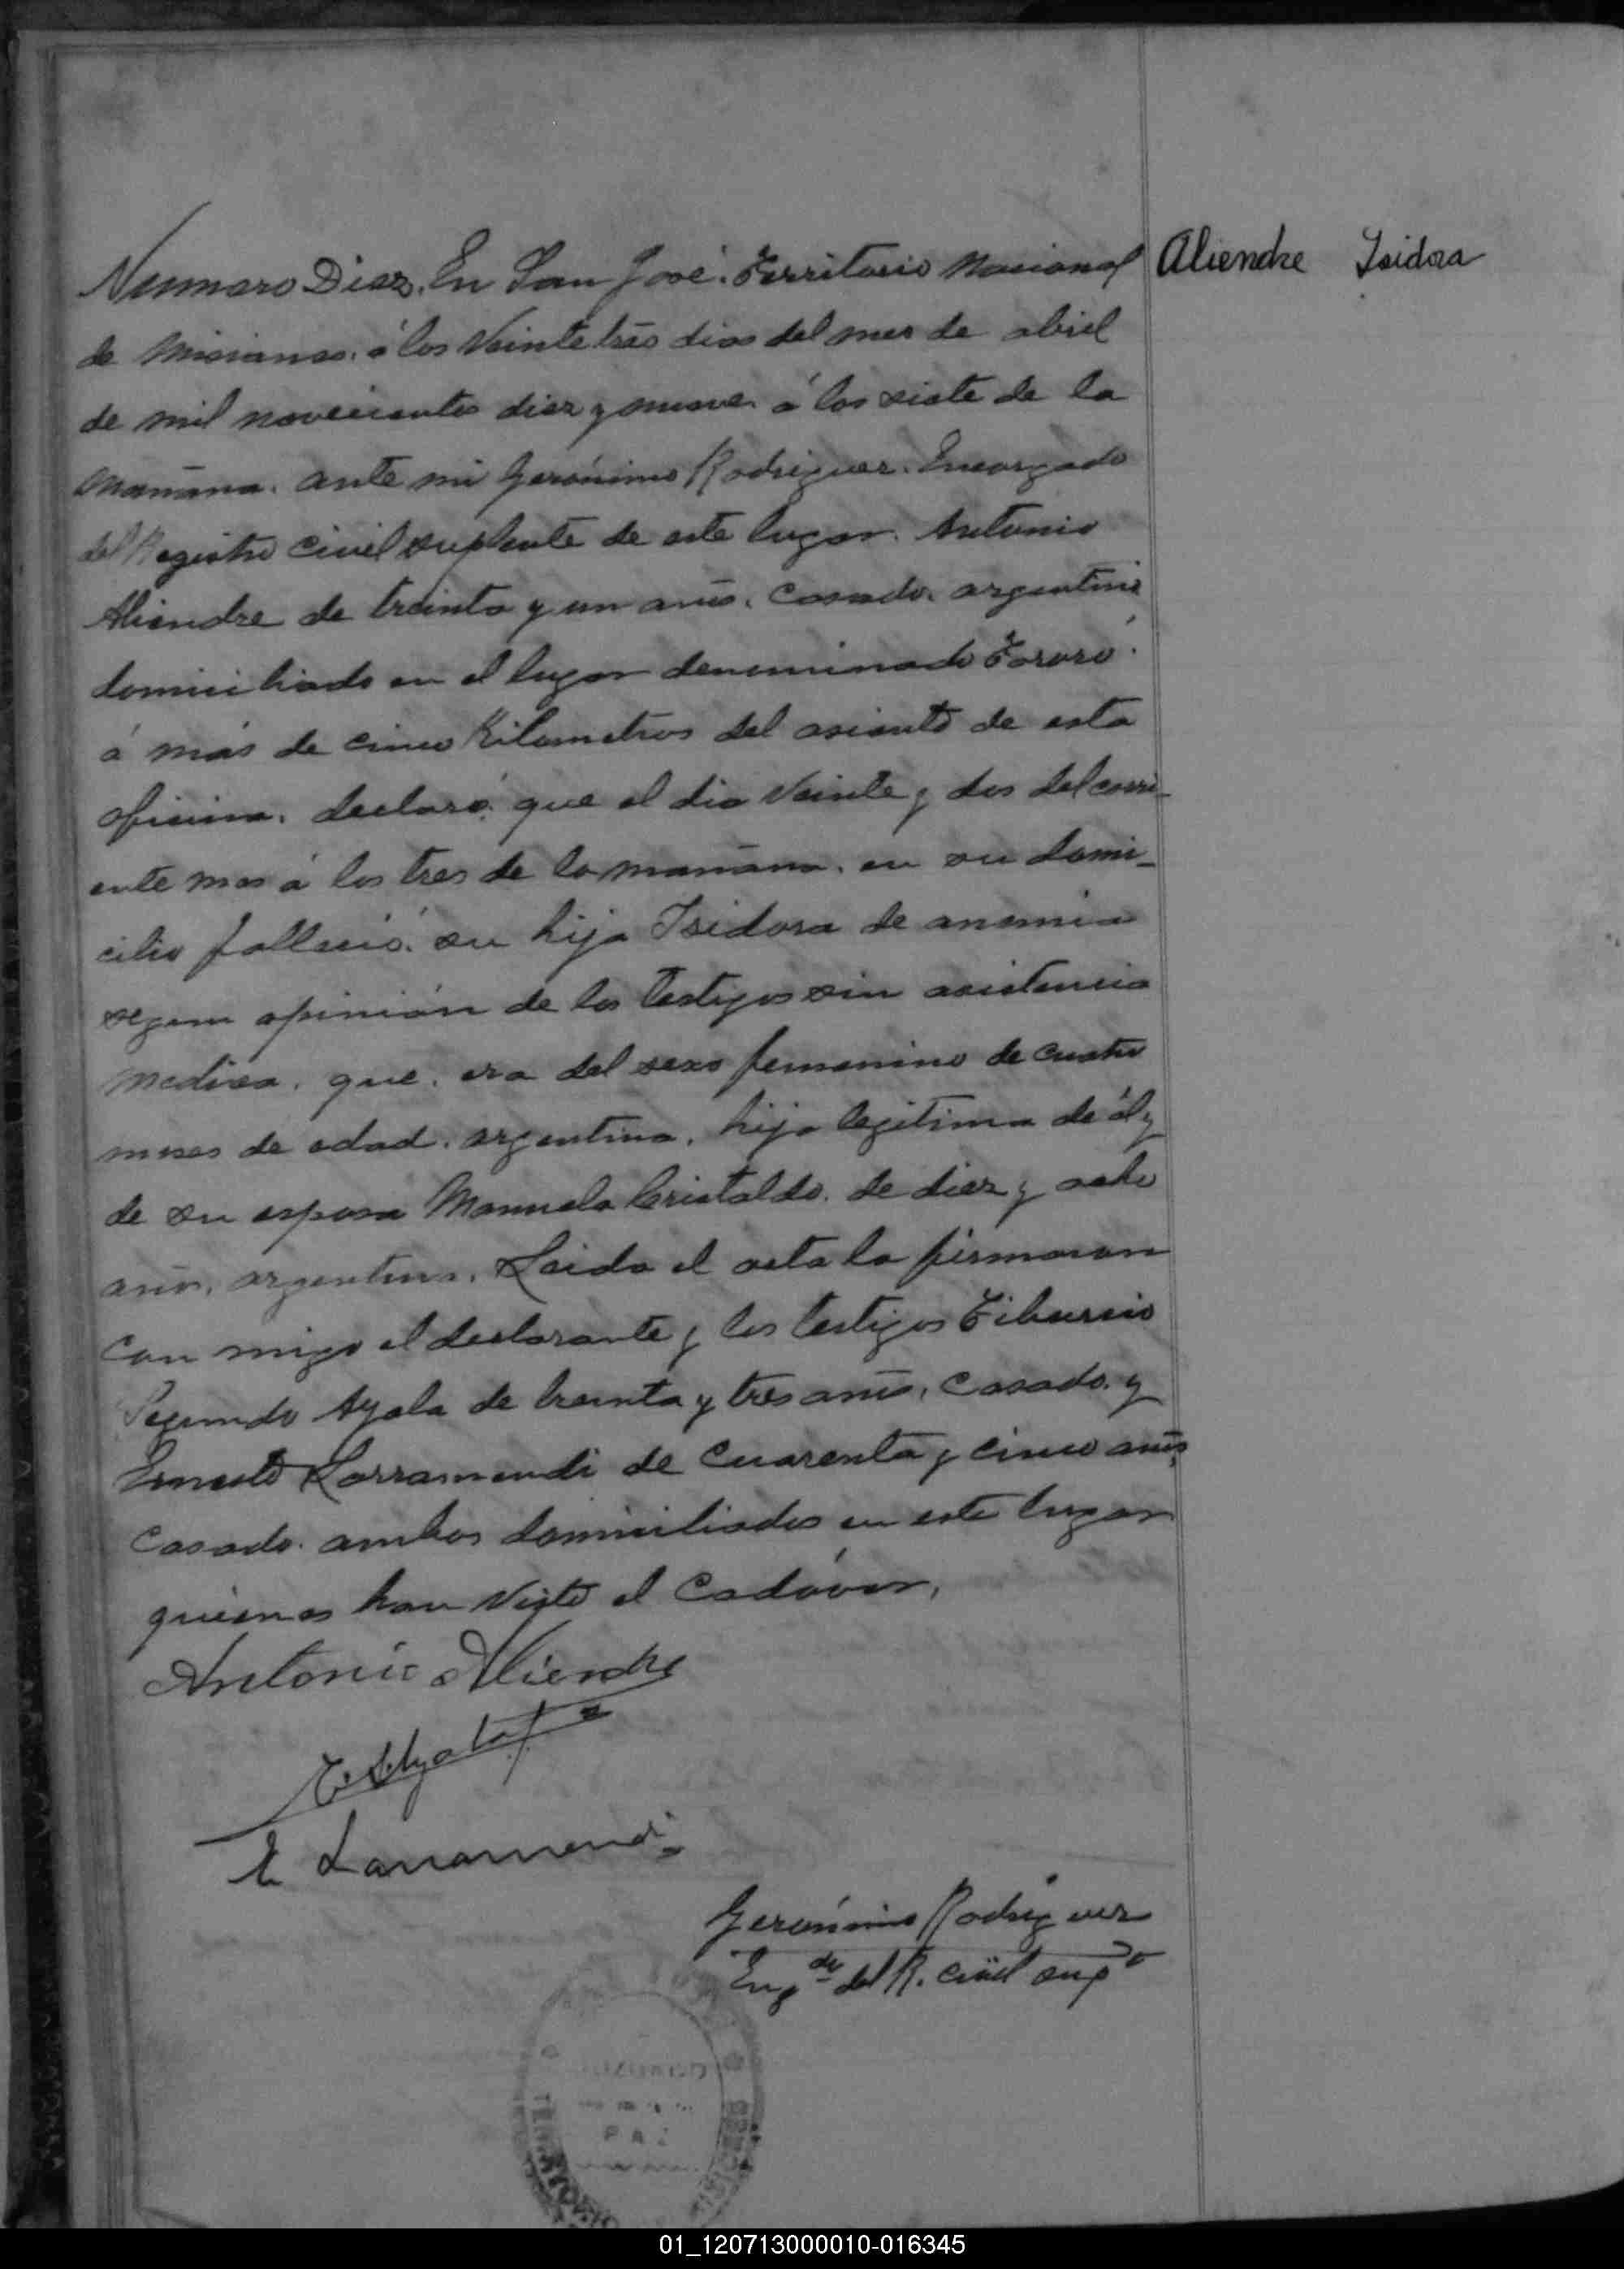 Numero Diez. En San José. Territorio Nacional
Aliendre Isidora
de Misiones. á los Veinte tres dias del mes de abril
de mil novecientos diez y nueve á las siete de la
mañana. ante mi Gerónimo Rodriguez. Encargado
del Registro Civil suplente de este lugar. Antonio
Aliendre de treinta y un años. Casado. argentino
domiciliado en el lugar denominado Tororó.
á más de cinco Kilometros del asiento de esta
oficina. declaró: que el dia Veinte y dos del corri-
ente mes á las tres de la mañana. en su domi-
cilio falleció. su hija Isidora de anemia
segun opinión de los testigos sin asistencia
medica. que. era del sexo femenino de cuatro
meses de edad. argentina. hija legitima de él y
de su esposa Manuela Cristaldo. de diez y ocho
años. argentina. Leida el acta la firmaron
con migo el declarante y los testigos Tiburcio
Segundo Ayala de treinta y tres años. Casado. y
Ernesto Larramendi de Cuarenta y cinco años
Casado. ambos domiciliados en este lugar
quienes han Visto el Cadáver.
Antonio Aliendre
T. S. Ayala
E Larramendi
Gerónimo Rodriguez
Eng.do del R. Civil sup.te
JUZGADO
PAZ
TERRITORIO
01_120713000010-016345